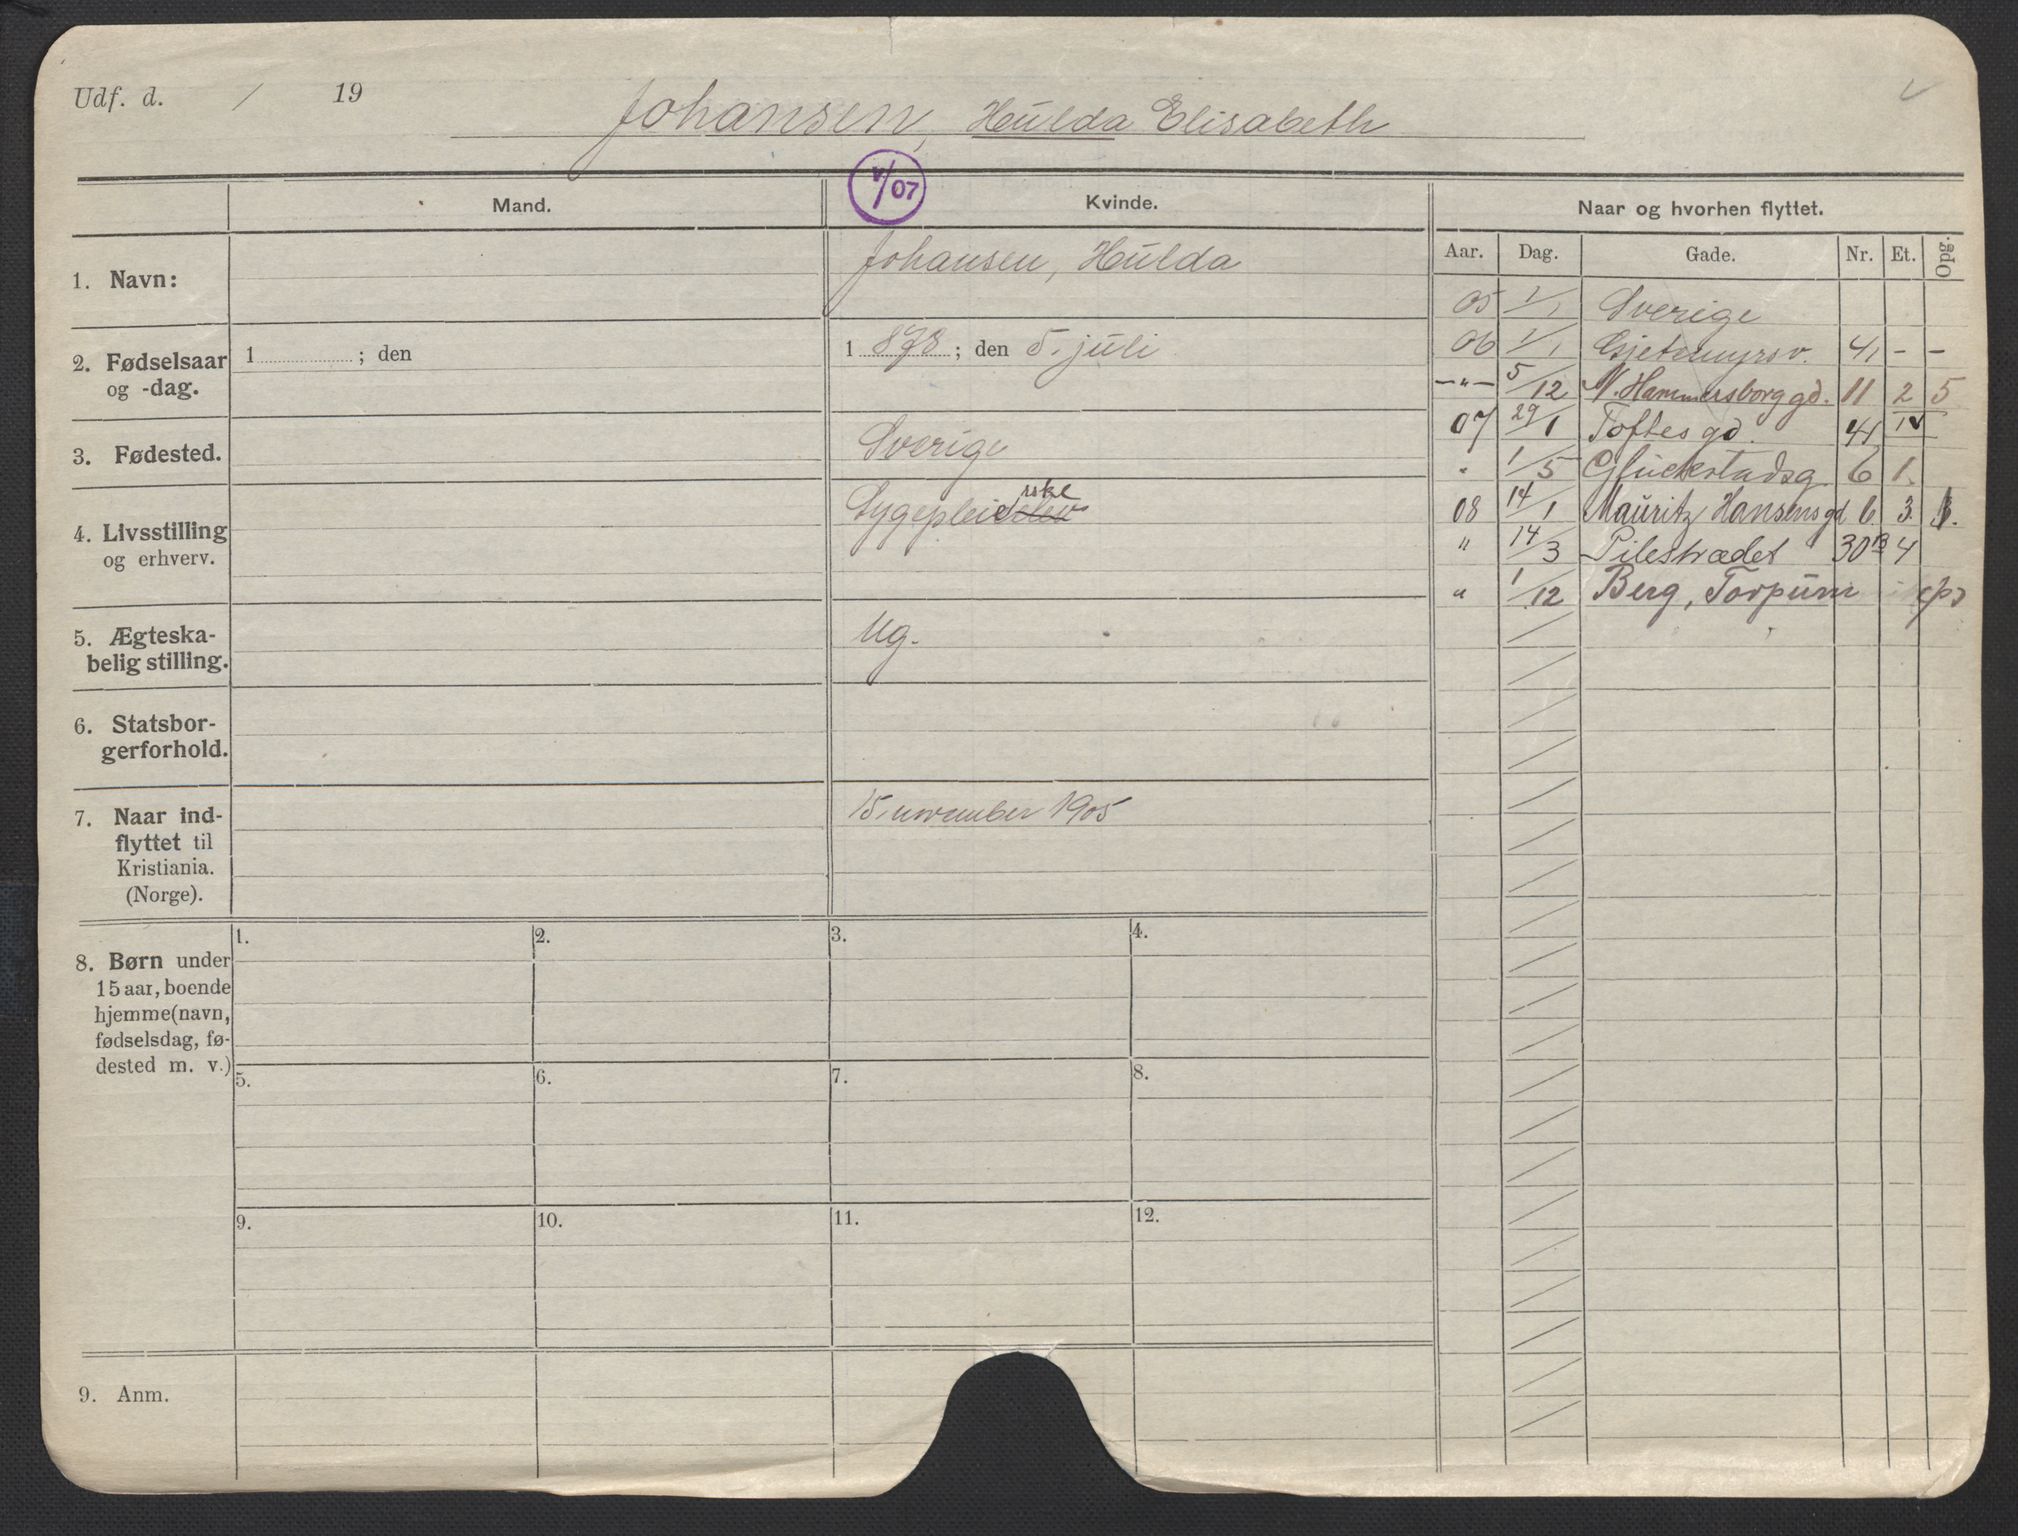 Udf. d. / 19
Johansen, Hulda Elisabeth
V/07
Mand. Kvinde. Naar og hvorhen flyttet.
Aar. Dag. Gade. Nr. Et. Opg.
1. Navn: Johansen, Hulda
2. Fødselsaar og -dag. 1 ; den 1 878 ; den 5. juli
3. Fødested. Sverige
4. Livsstilling og erhverv. Sygepleieelev rske
5. Ægteska-
belig stilling. Ug.
6. Statsbor-
gerforhold.
7. Naar ind-
flyttet til
Kristiania.
(Norge). 15. november 1905
05 1/1 Sverige
06 1/1 Gjetemyrsv. 41 - -
—"— 5/12 N. Hammersborg gd. 11 2 5
07 29/1 Toftes gd. 41 IV
" 1/5 Glückstadsg. 6 1.
08 14/1 Mauritz Hansens gd 6 3.
" 14/3 Pilestrædet 30 B 4
" 1/12 Berg, Torpum
8. Børn under
15 aar, boende
hjemme (navn,
fødselsdag, fø-
dested m. v.)
1. 2. 3. 4.
5. 6. 7. 8.
9. 10. 11. 12.
9. Anm.